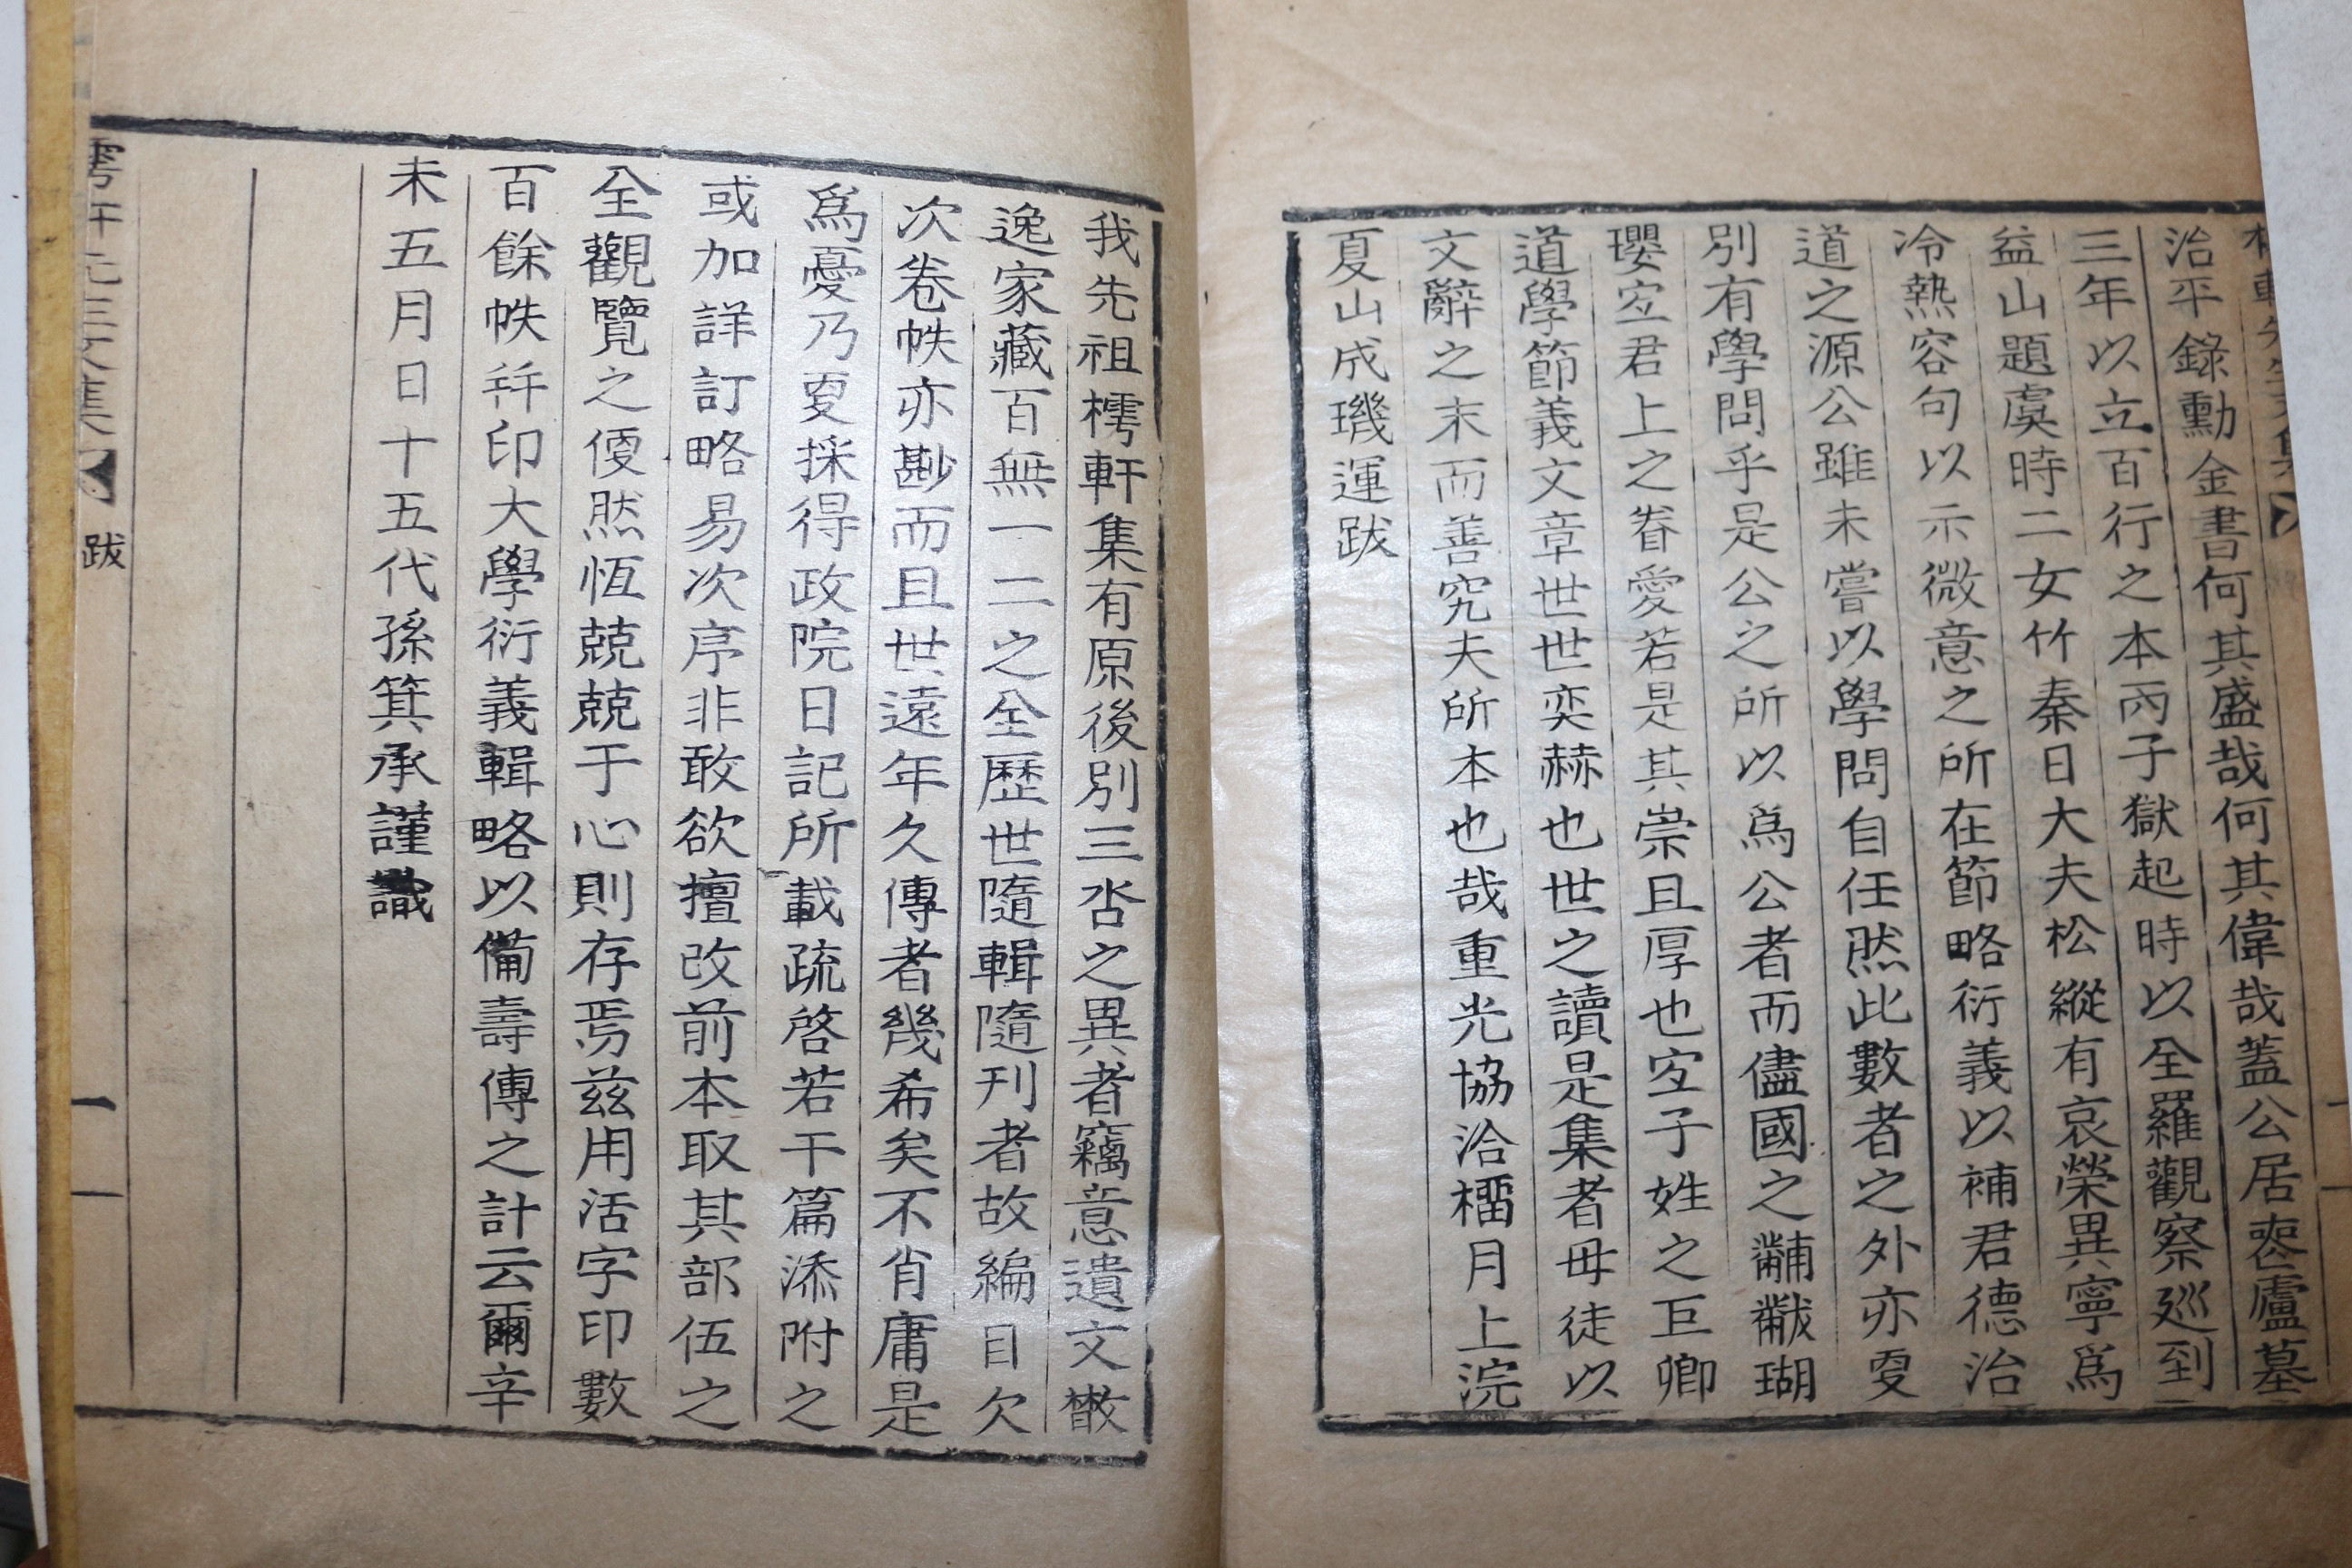 治平錄勳金書何其盛哉何其偉哉蓋公居喪廬墓
三年以立百行之本丙子獄起時以全羅觀察廵到
益山題虞時二女竹秦日大夫松縱有哀榮異寧爲
冷熱容句以示微意之所在節略衍義以補君德治
道之源公雖未嘗以學問自任然此數者之外亦叓
別有學問乎是公之所以爲公者而儘國之黼黻瑚
瓔宐君上之眷愛若是其崇且厚也宐子姓之巨卿
道學節義文章世世奕赫也世之讀是集者毋徒以
文辭之末而善究夫所本也哉重光協洽橊月上浣
夏山成璣運跋
我先祖樗軒集有原後別三呇之異者竊意遺文㪚
逸家藏百無一二之全歷世隨輯隨刊者故編目欠
次卷帙亦尠而且世遠年久傳者幾希矣不肖庸是
爲憂乃叓採得政院日記所載疏啓若干篇添附之
或加詳訂略易次序非敢欲擅改前本取其部伍之
全觀覽之便然恆兢兢于心則存焉茲用活字印數
百餘帙幷印大學衍義輯略以備壽傳之計云爾辛
未五月日十五代孫箕承謹識
跋